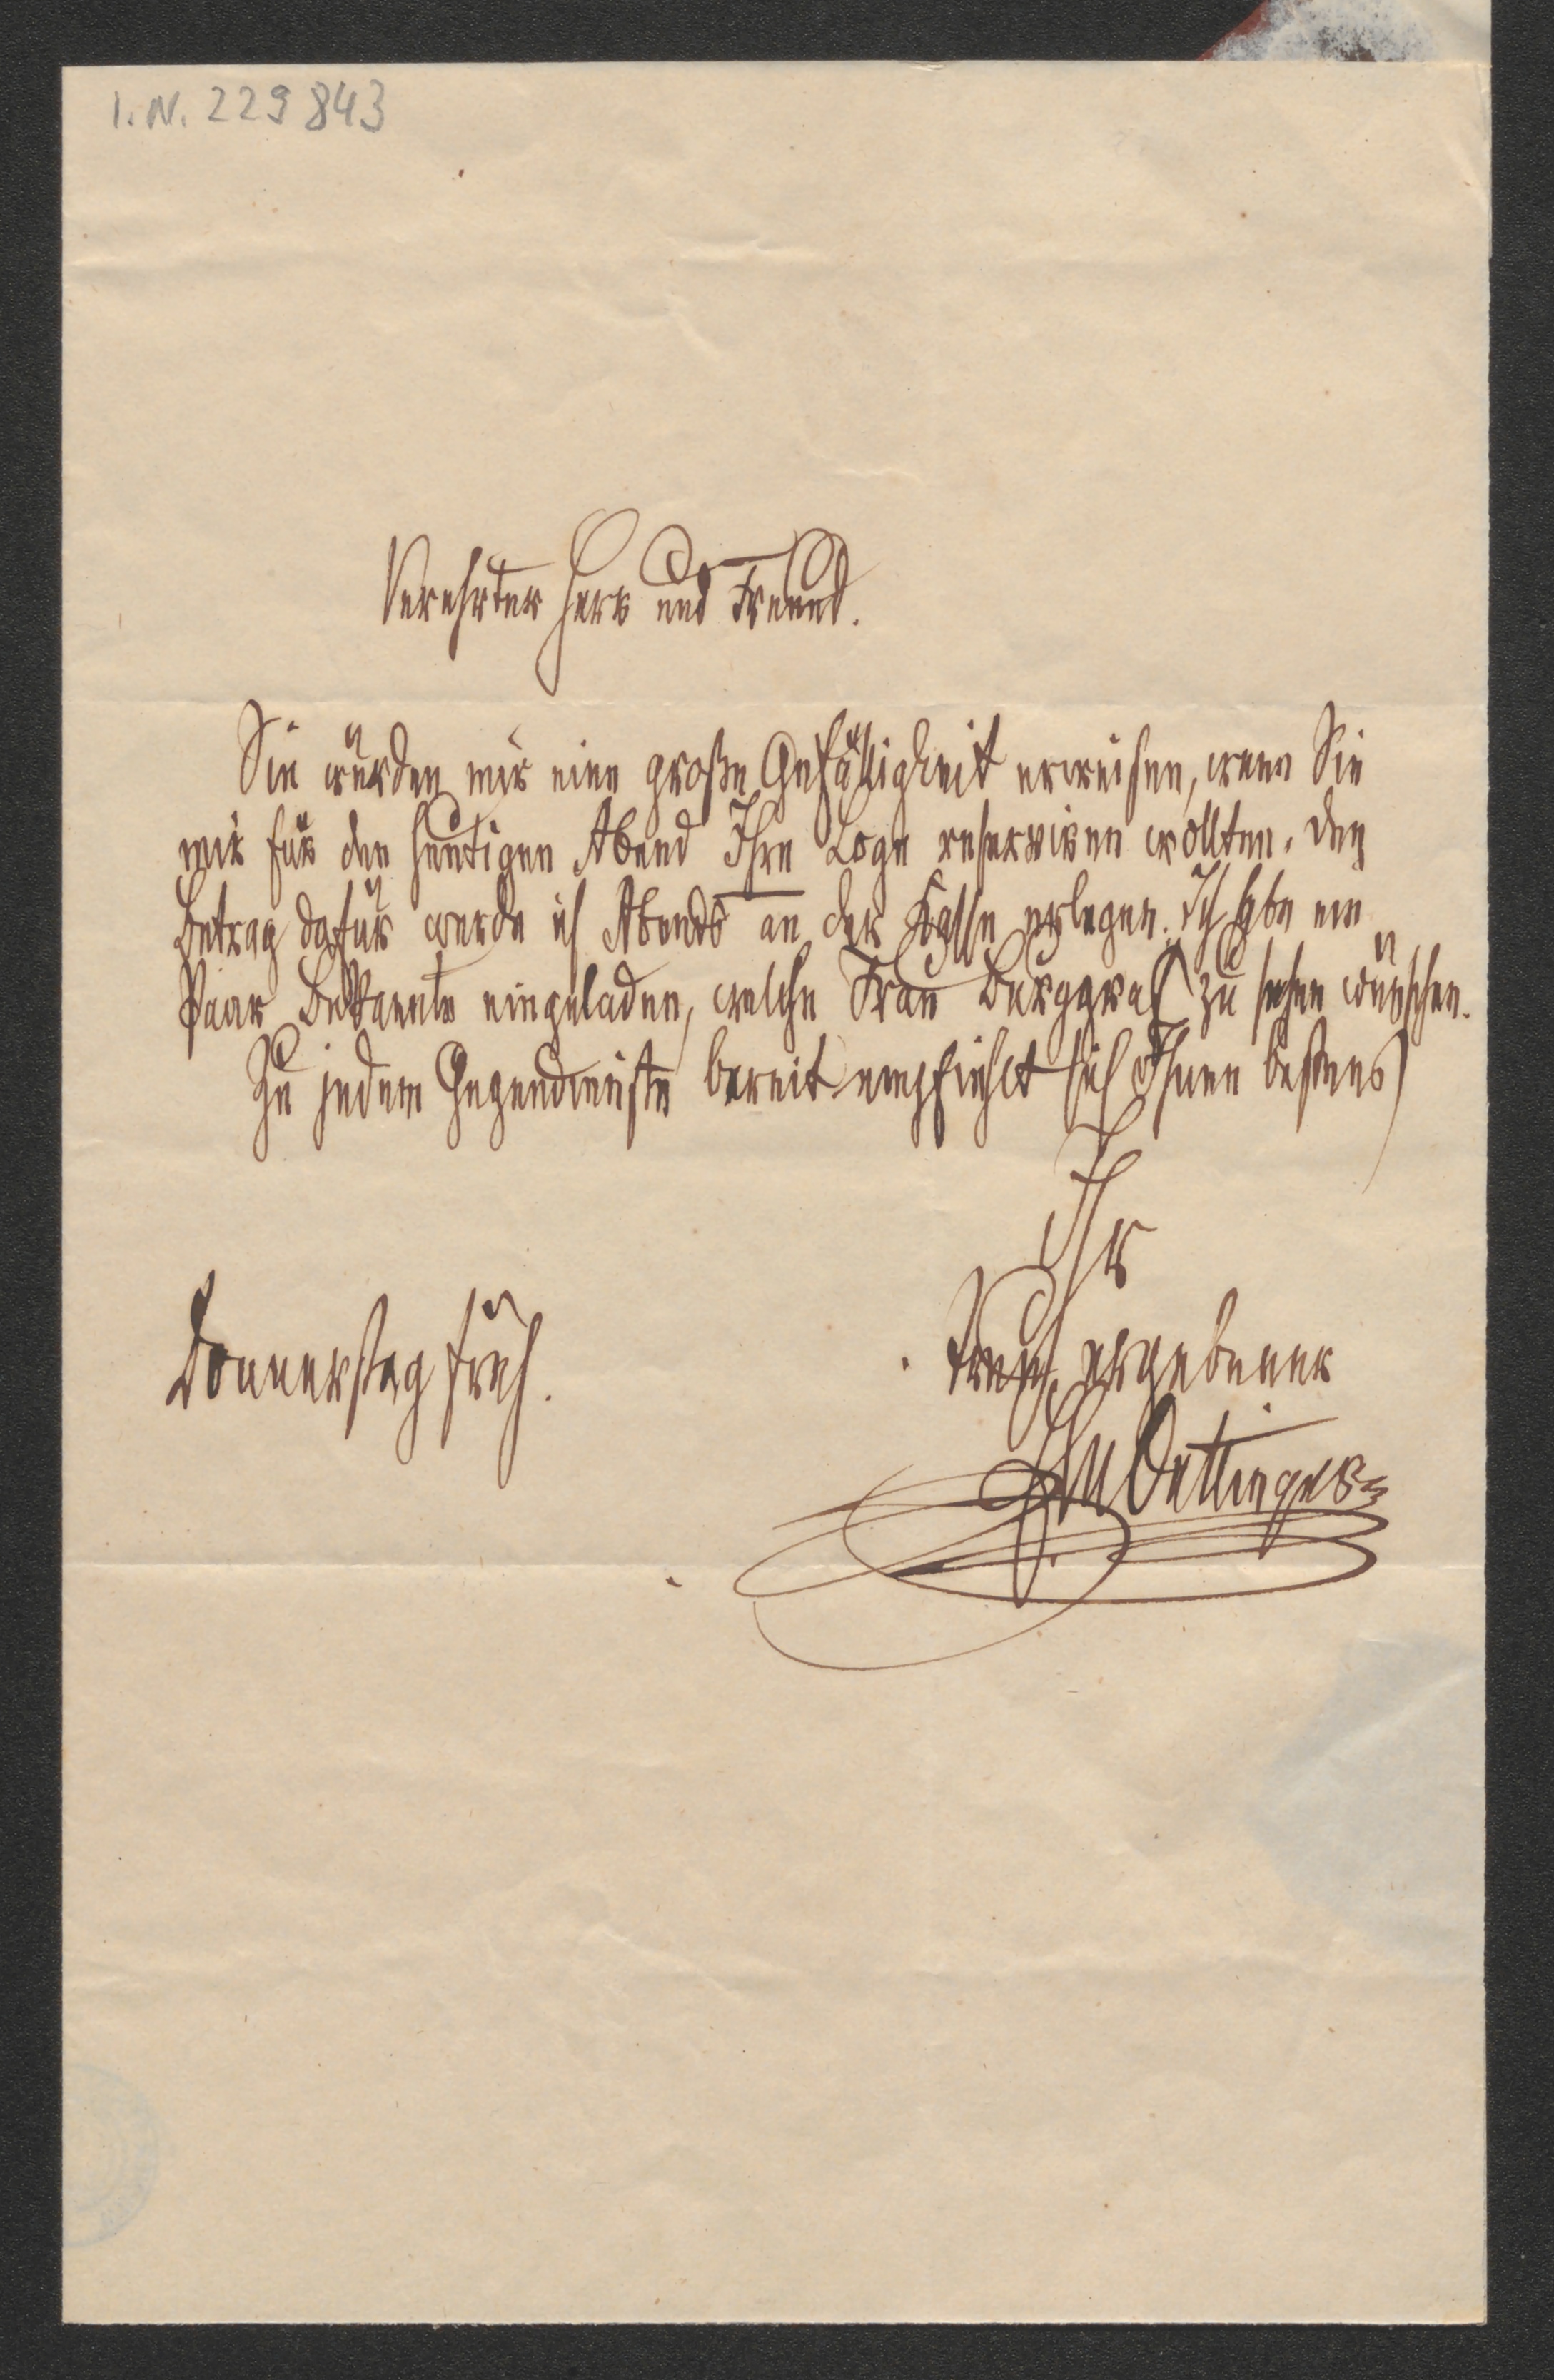 I.N. 229843
Verehrter Herr und Freund.
Sie würden mir eine große Gefälligkeit erweisen, wenn Sie
mir für den heutigen Abend Ihre Loge reserviren wollten. Den
Betrag dafür werde ich Abends an der Kasse erlegen. Ich habe ein
Paar Bekannte eingeladen, welche Frau Burggraf zu sehen wünschen.
Zu jedem Gegendienste bereit empfiehlt sich Ihnen bestens
Ihr
Donnerstag früh.
ergebener
Oettinger